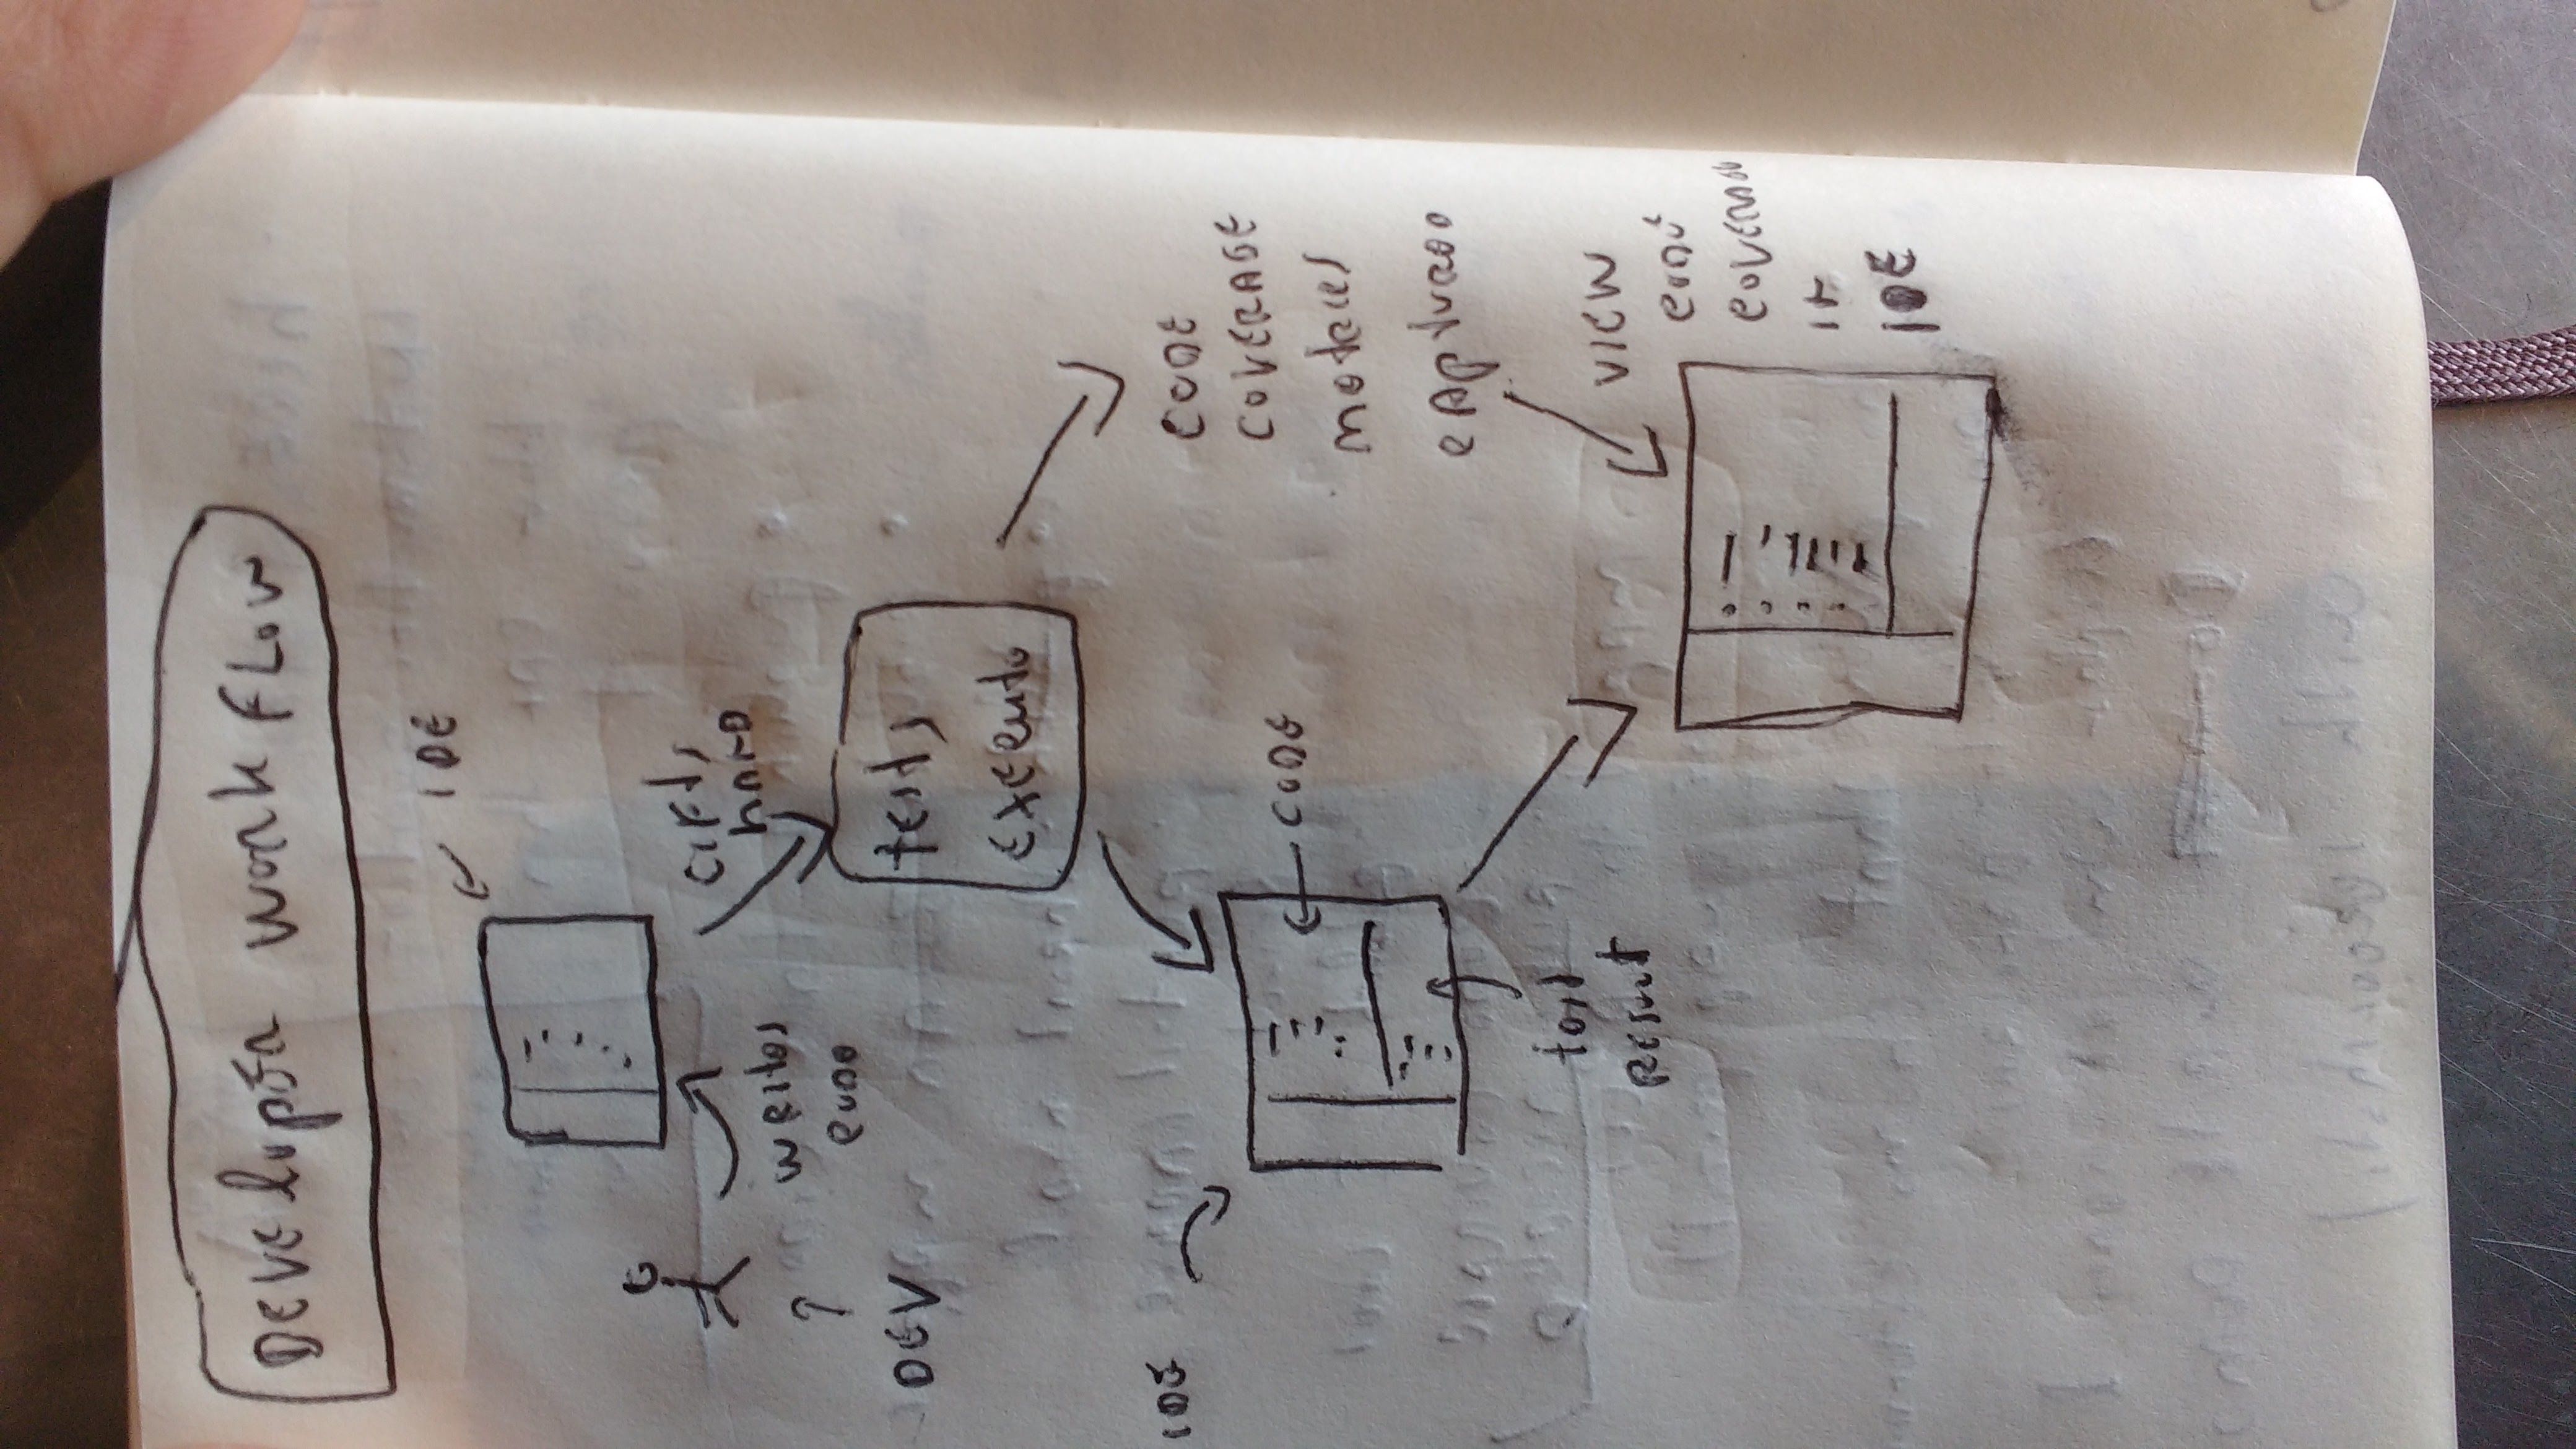 DEVELOPER WORKFLOW
IDE
writes
code
DEV
tests
execute
CODE
COVERAGE
metrics
captured
IDE
CODE
test
result
VIEW
code
coverage
in
IDE